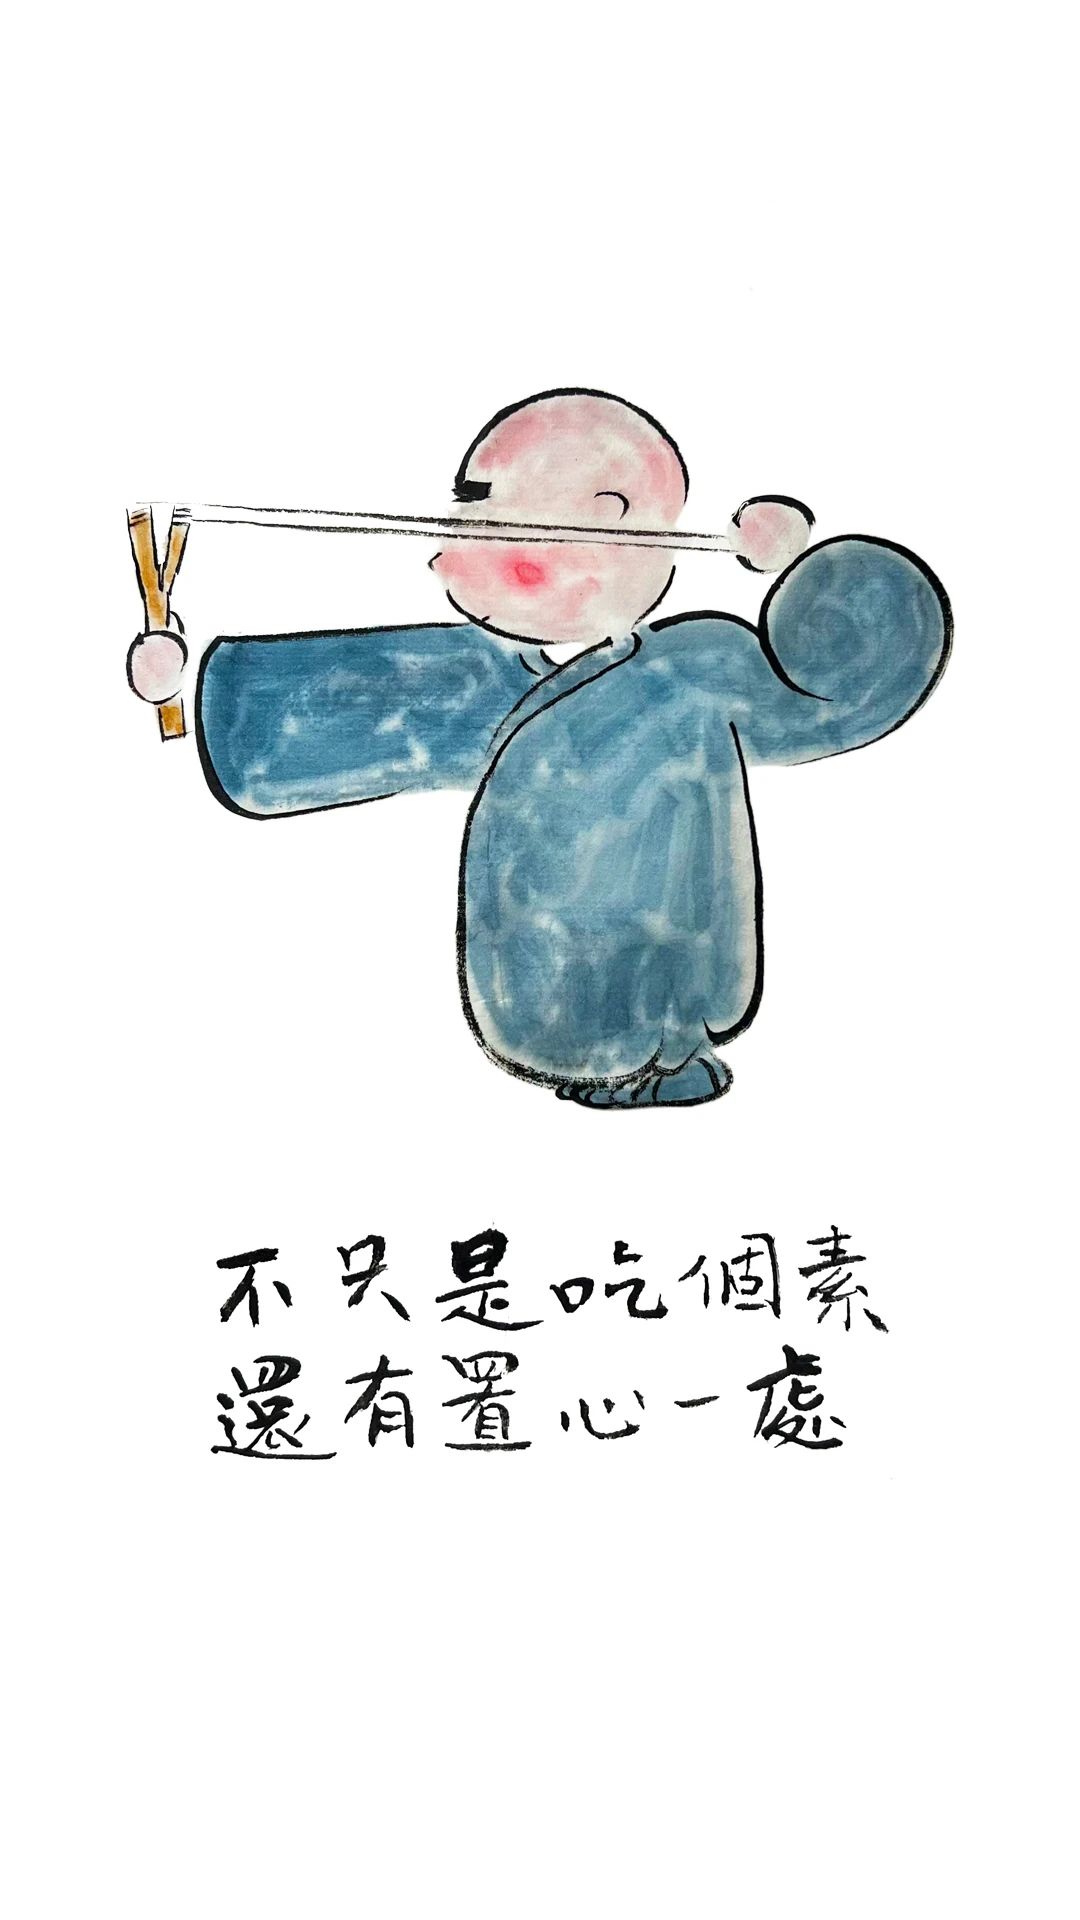 不只是吃個素
還有置心一處